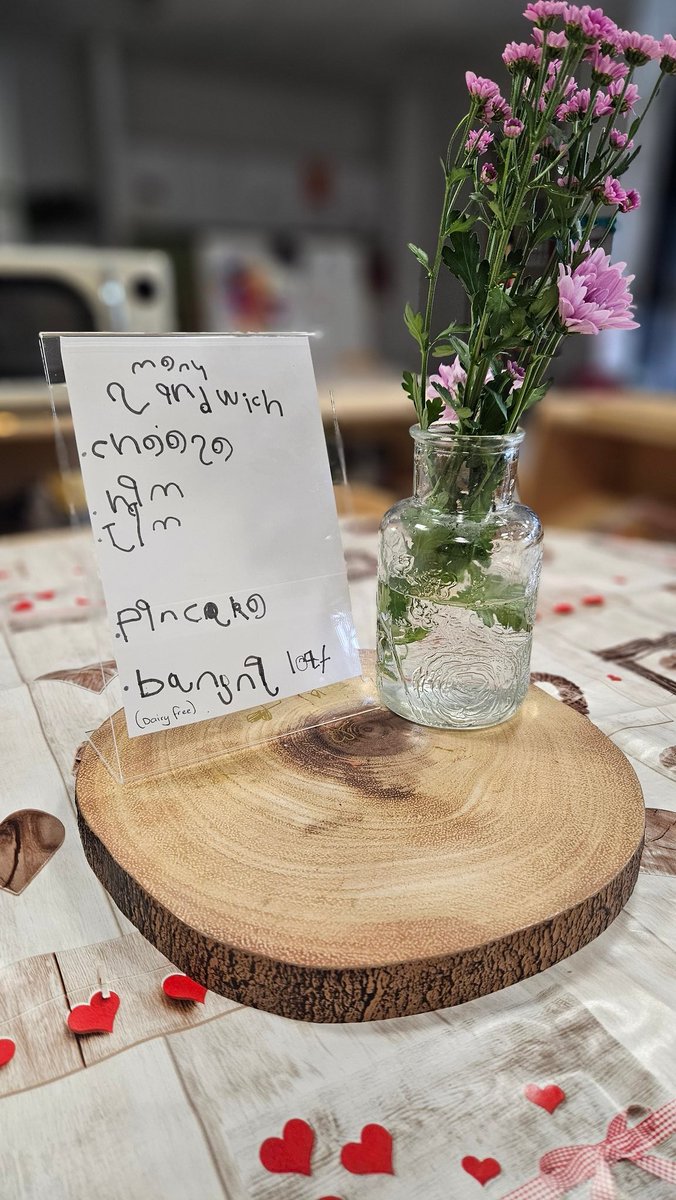 meny
sandwich
.cheese
.ham
.Jam
.pancake
.banana loaf
(Dairy free)